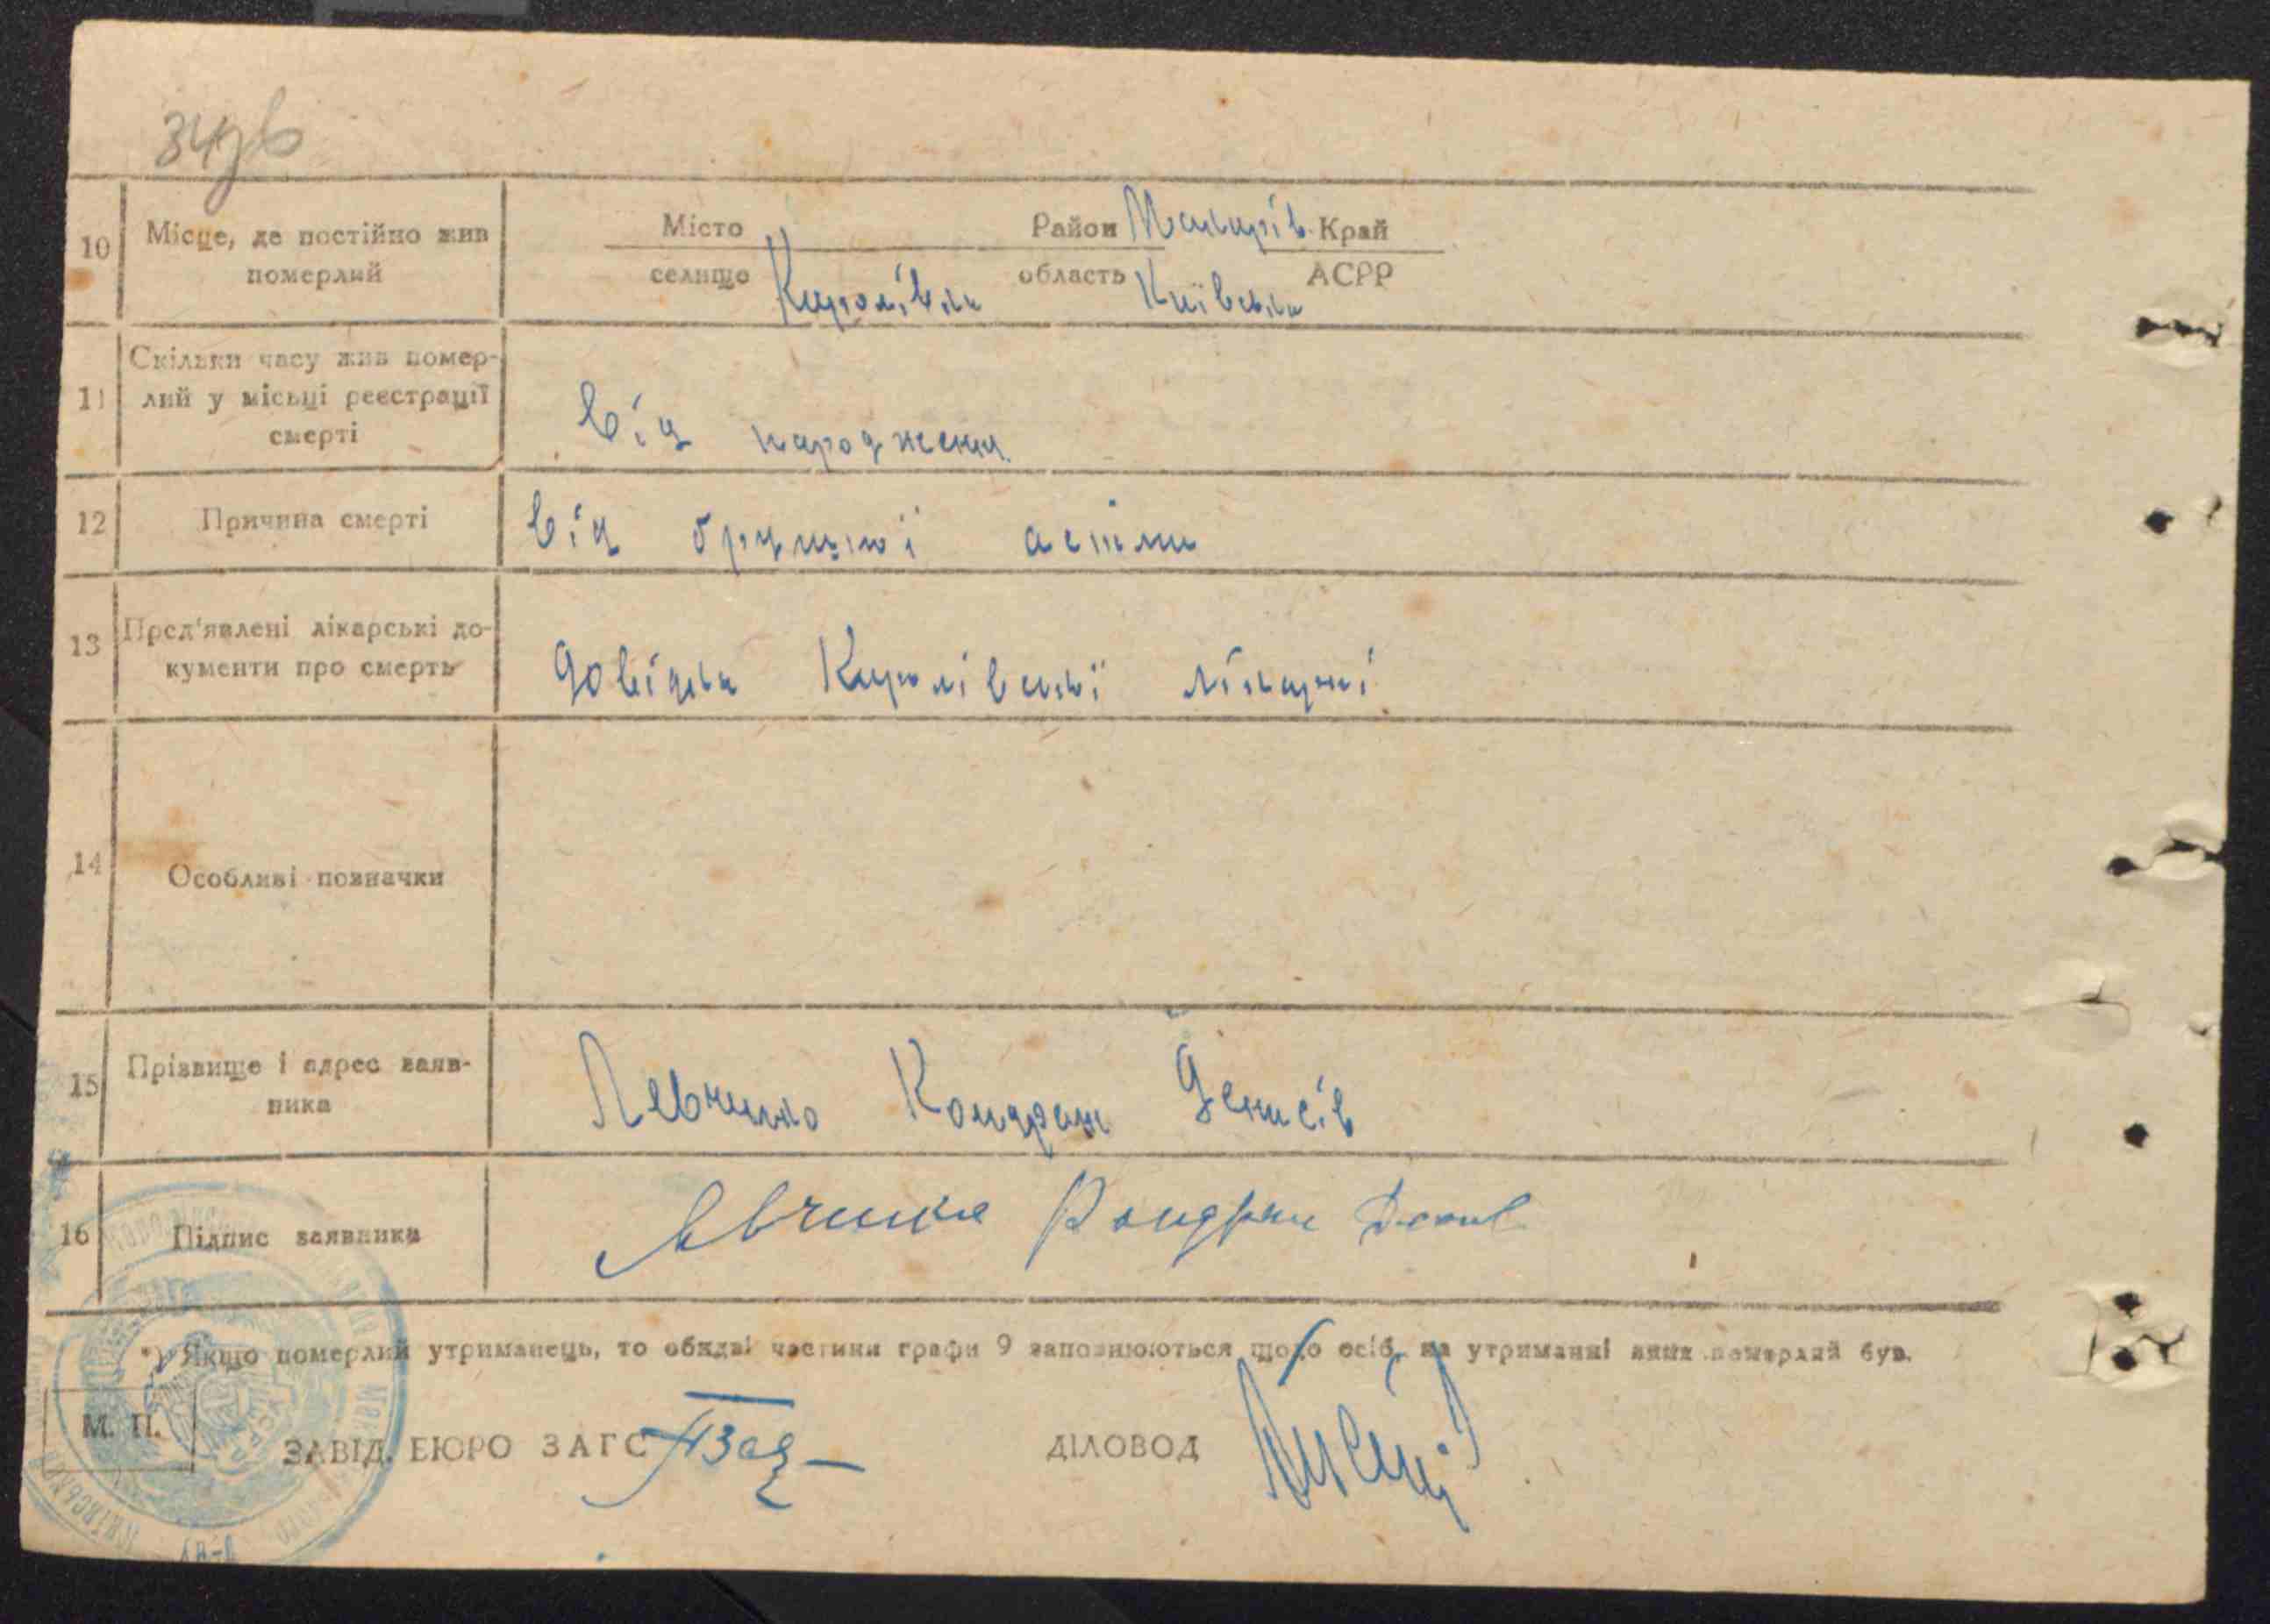 34зв
10 Місце, де постійно жив Місто Район Макарів. Край
померлий селище Королівка область Київська АСРР
Скільки часу жив помер-
11 лий у місьці реєстрації від народження
смерті
12 Причина смерті від астми
13 Пред'явлені лікарські до- довідка Королівської лікарні
кументи про смерть
14 Особливі позначки
15 Прізвище і адрес заяв- Левченко Кондрат Денисів
ника
16 Підпис заявника Левченко Кондрат
*) Якщо померлий утриманець, то обидві частини графи 9 заповнюються щодо осіб, на утриманні яких померлий був.
М. П.
ЗАВІД. БЮРО ЗАГС ДІЛОВОД